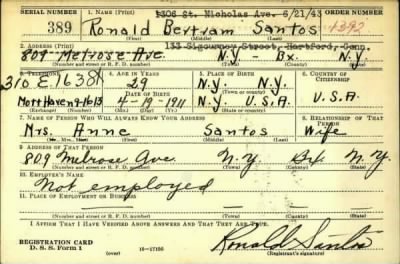 SERIAL NUMBER 1. NAME (Print) 1306 St. Nicholas Ave. 6/21/43 ORDER NUMBER
389 Ronald Bertram Santos 4392
(First) (Middle) (Last)
2. ADDRESS (Print) 133 Sigourney Street, Hartford, Conn.
809 Melrose Ave. N.Y. - Bx. N.Y.
(Number and street or R. F. D. number) (Town) (County) (State)
3. TELEPHONE 4. AGE IN YEARS 5. PLACE OF BIRTH 6. COUNTRY OF CITIZENSHIP
310 E 163 St 29 N.Y. N.Y.
Mott Haven 9-1613 DATE OF BIRTH (Town) (County) U.S.A.
4-19-1911 N.Y. U.S.A.
(Exchange) (Number) (Mo.) (Day) (Yr.) (State) (Country)
7. NAME OF PERSON WHO WILL ALWAYS KNOW YOUR ADDRESS 8. RELATIONSHIP OF THAT PERSON
Mrs. Anne Santos Wife
9. ADDRESS OF THAT PERSON
809 Melrose Ave. N.Y. Bx N.Y.
(Number and street or R. F. D. number) (Town) (County) (State)
10. EMPLOYER'S NAME
Not employed
11. PLACE OF EMPLOYMENT OR BUSINESS
(Number and street or R. F. D. number) (Town) (County) (State)
I AFFIRM THAT I HAVE VERIFIED ABOVE ANSWERS AND THAT THEY ARE TRUE.
REGISTRATION CARD
D. S. S. FORM 1 (over) 16-17105 Ronald Santos
(Registrant's signature)